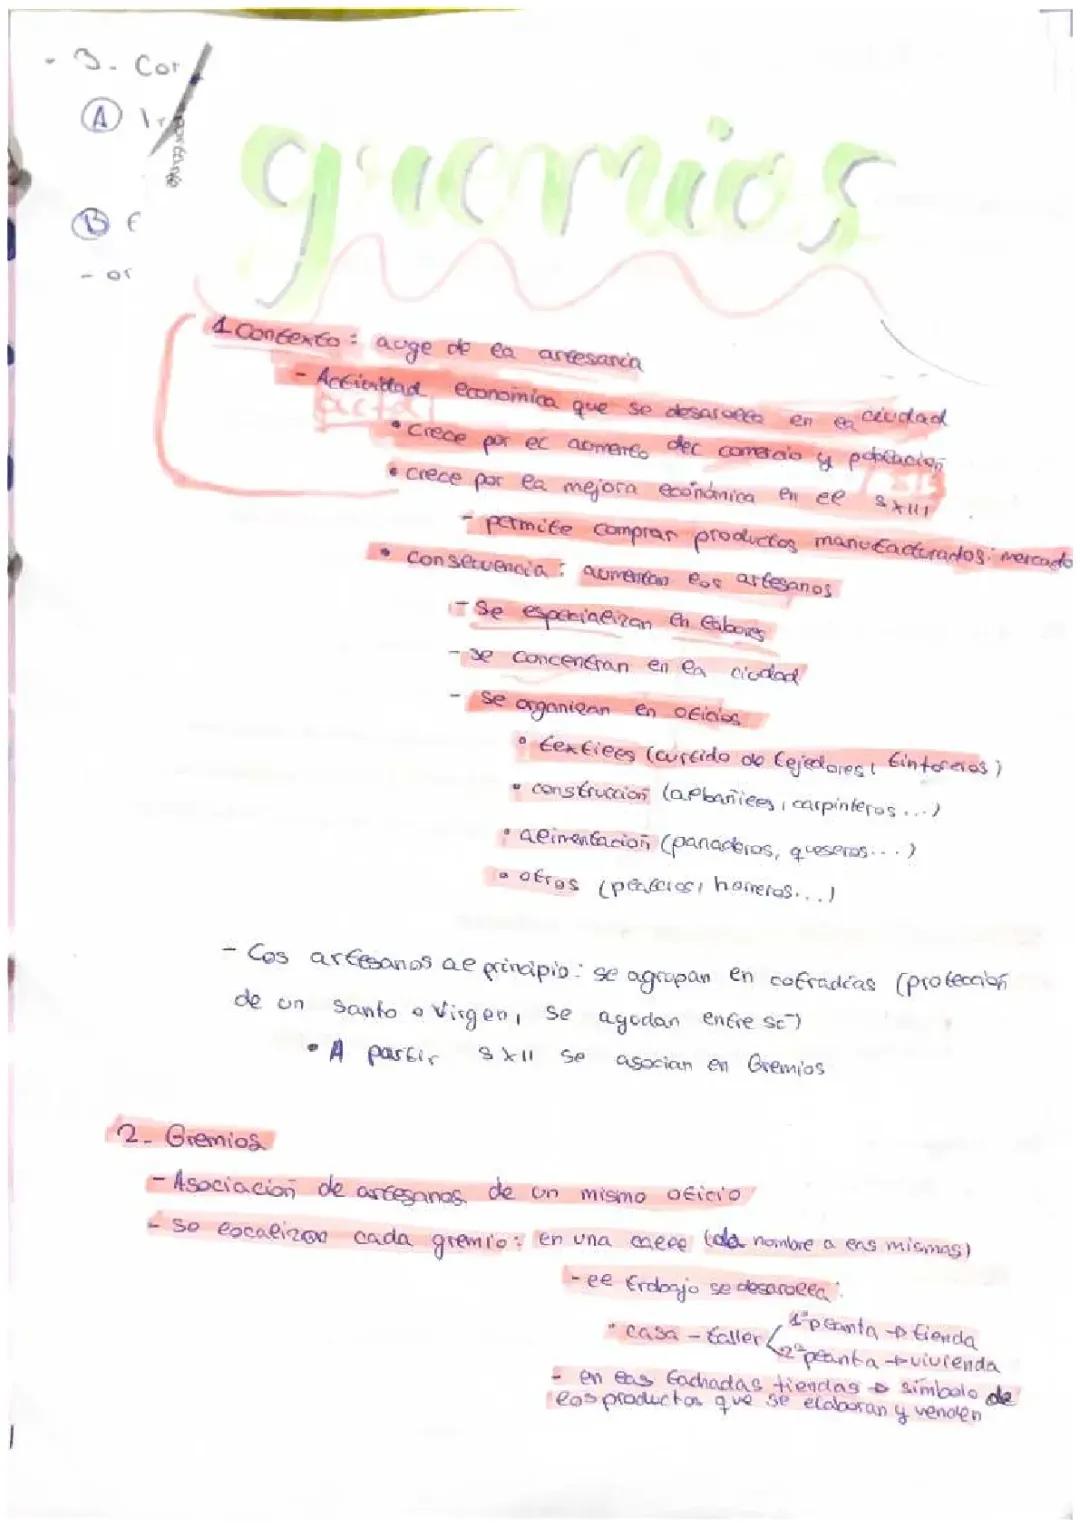 - 3- Cor
A
importante
B
- or
gremios
1 Contexto: auge de la artesanía
- Actividad económica que se desarolla en la ciudad
• Crece por el aumento del comercio y población
• crece por la mejora económica en el s XIII
- permite comprar productos manufacturados: mercado
• consecuencia: aumentan los artesanos
- Se especializan en labores
- se concentran en la ciudad
- se organizan en oficios
• textiles (curtido de tejedores, tintoreros)
• construcción (albañiles, carpinteros...)
• alimentación (panaderos, queseros...)
• otros (plateros, herreros...)
- Los artesanos al principio: se agrupan en cofradías (protección
de un santo o Virgen, se ayudan entre sí)
• A partir s XII se asocian en Gremios
2- Gremios
- Asociación de artesanos de un mismo oficio
- se localizan cada gremio: en una calle (da nombre a las mismas)
- el trabajo se desarolla:
• casa - taller 1ª planta → tienda
2ª planta → vivienda
- en las fachadas tiendas → símbolo de
los productos que se elaboran y venden